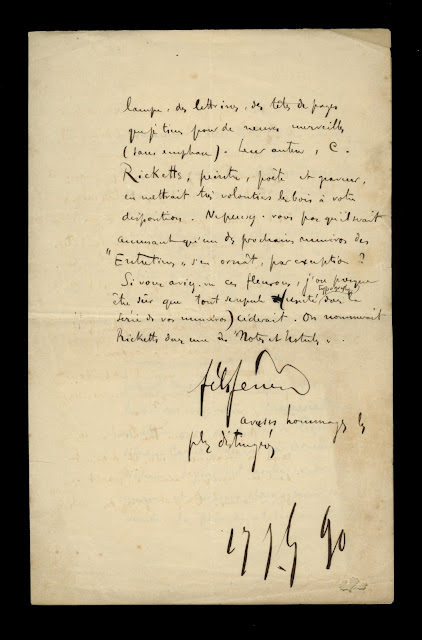 lampe, des lettrines, des têtes de pages
que je tiens pour de neuves merveilles
(sans emphase). Leur auteur, C.
Ricketts, peintre, poète et graveur,
en mettrait très volontiers les bois à votre
disposition. Ne pensez-vous pas qu'il serait
amusant qu'un des prochains numéros des
"Entretiens" s'en ornât, par exception ?
Si vous aviez vu ces fleurons, j'ose presque
être sûr que tout scrupule (unité typogr. dans la
série de vos numéros) cèderait. On nommerait
Ricketts dans une des "Notes et Notules".
félix fénéon
avec ses hommages les
plus distingués
17 7b 90